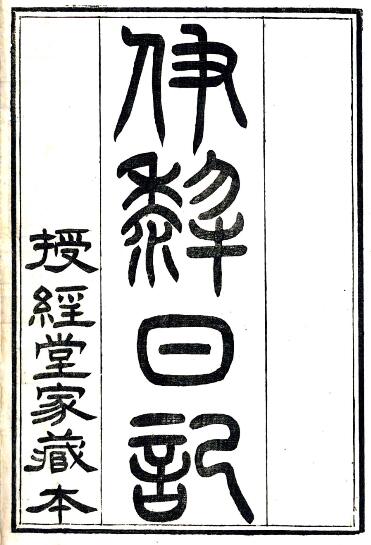 伊犂日記
授經堂家藏本